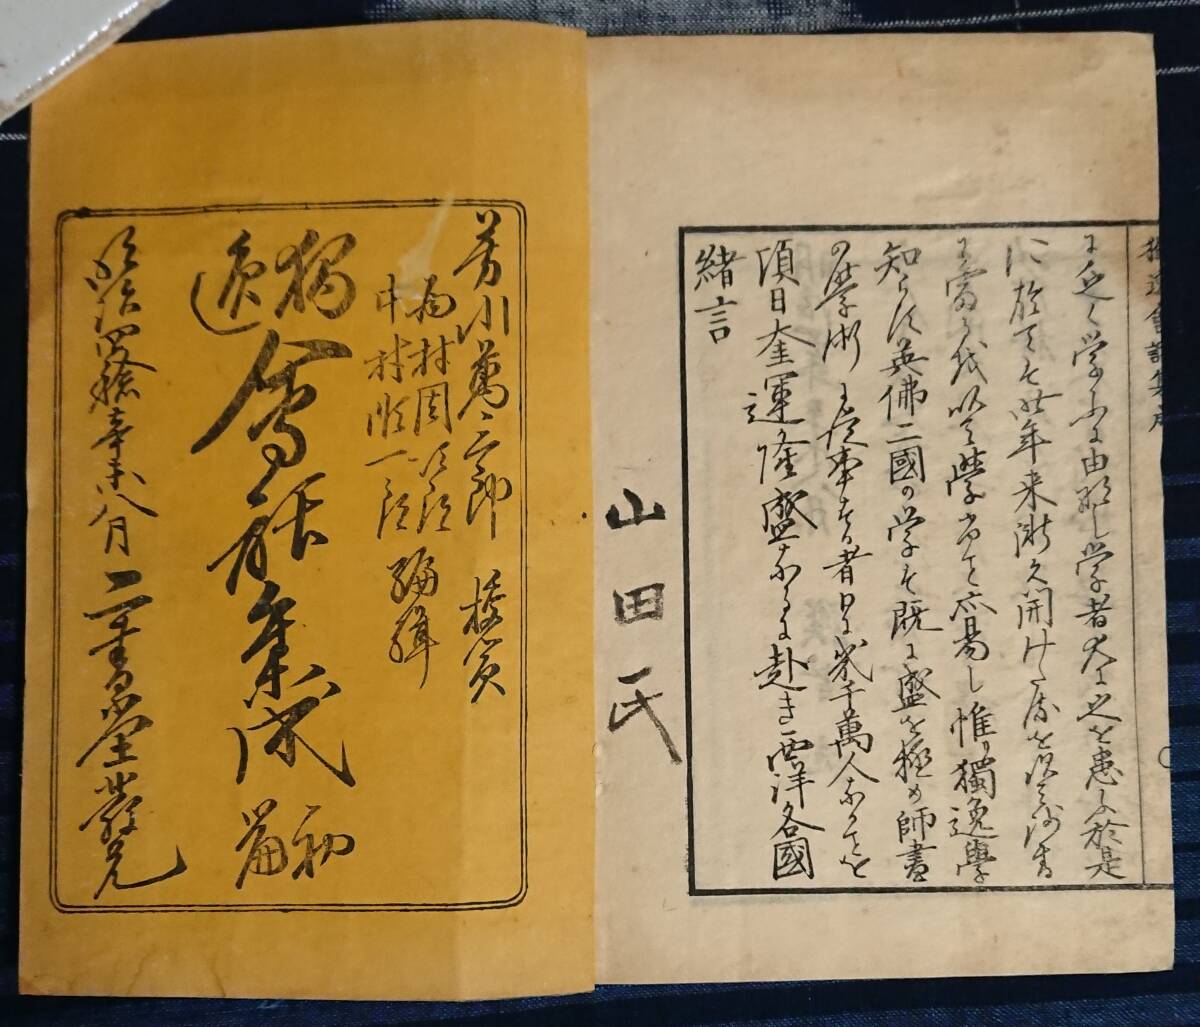 芳川萬三郎 校閲
中村順一郎
編輯
獨逸會話集成 初篇
明治四禩辛未八月
山田氏
緒言
項日奎運隆盛なるに赴き西洋各國
の學術に従事する者日に幾千萬人なることを
知らす英佛二國の学は既に盛を極め師書
に富るを以て學ふこと亦易し惟り獨逸學
に於ては此年来漸く開けたるを以て師書
に乏く学ふに由なし学者大に之を患ふ於是
獨逸會話集成